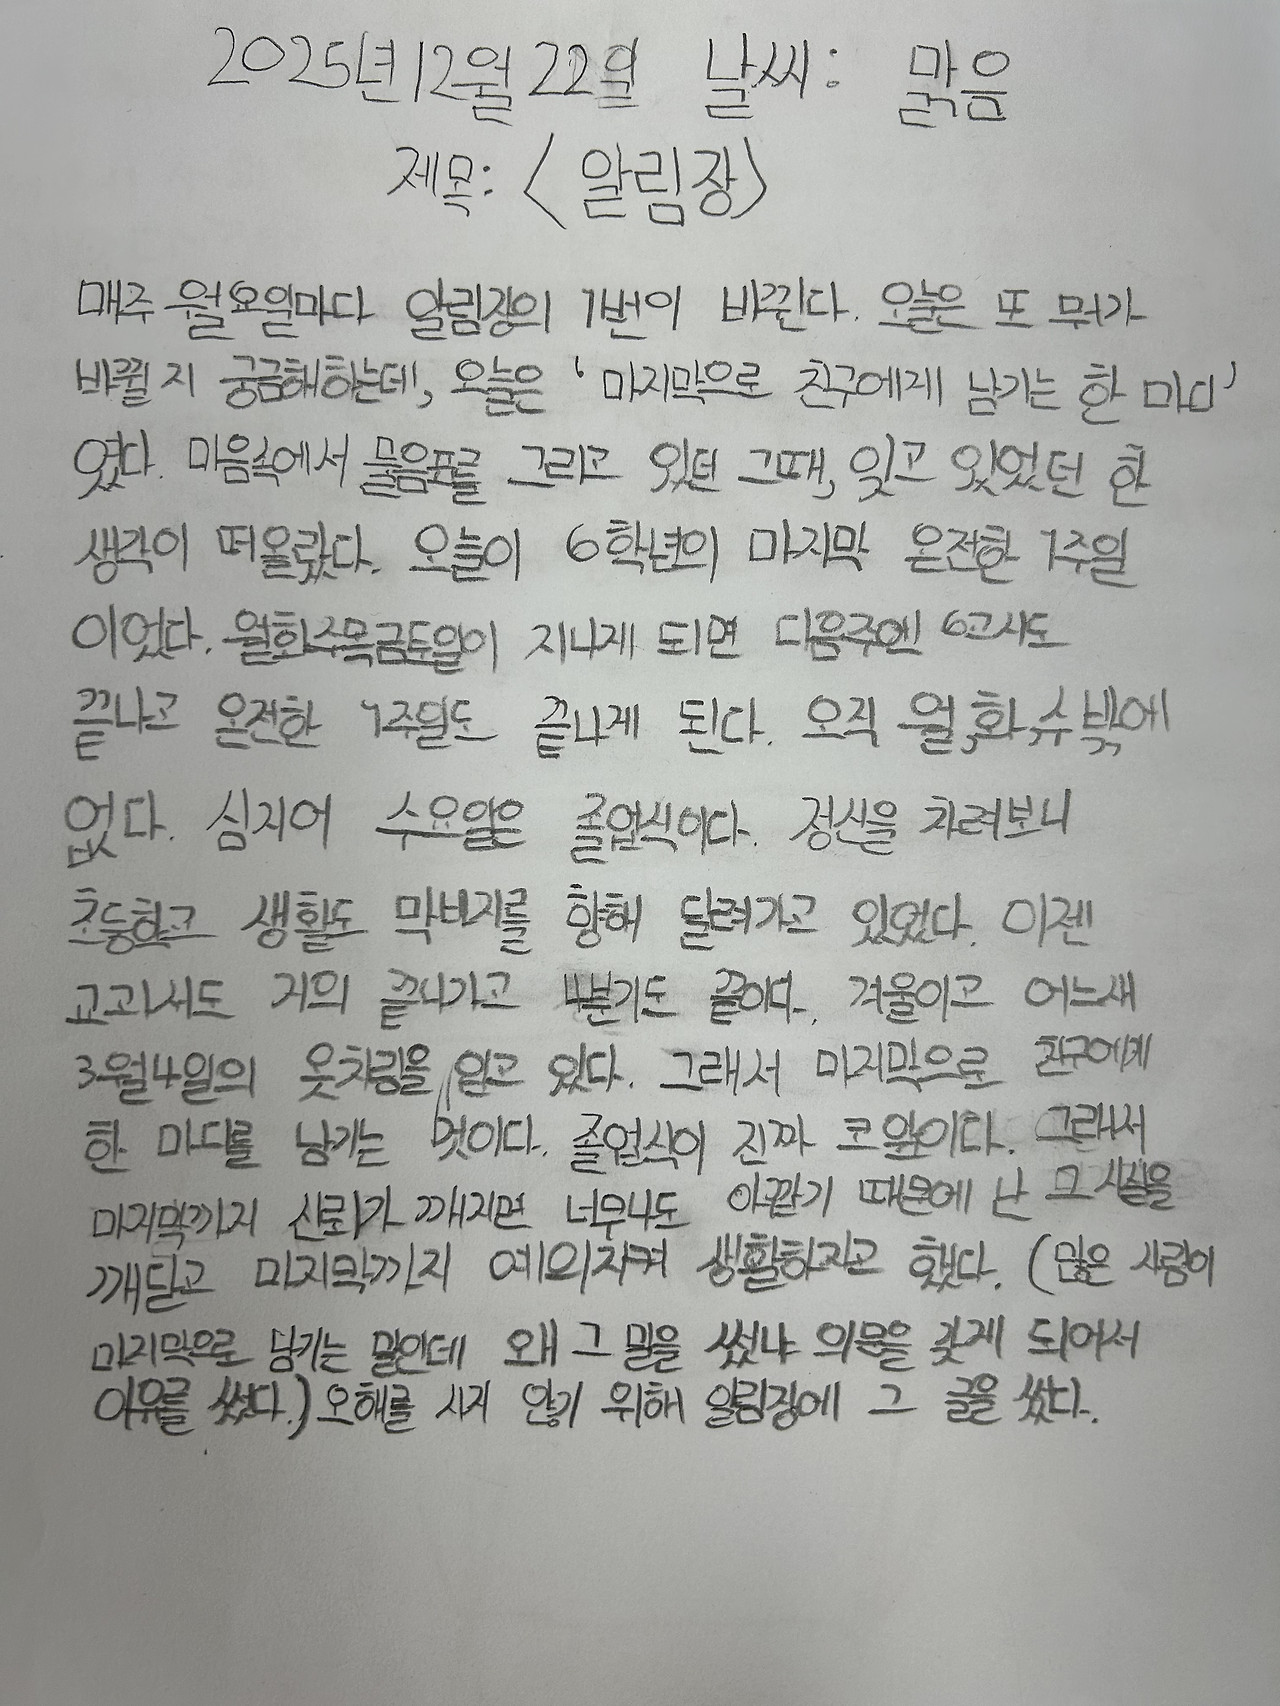 2025년 12월 22일 날씨: 맑음
제목: < 알림장>
매주 월요일마다 알림장의 1번이 바뀐다. 오늘은 또 뭐가
바뀔 지 궁금해하는데, 오늘은 '마지막으로 친구에게 남기는 한 마디'
였다. 마음속에서 물음표를 그리고 있던 그때, 잊고 있었던 한
생각이 떠올랐다. 오늘이 6학년의 마지막 온전한 1주일
이었다. 월화수목금토일이 지나게 되면 다음주엔 6교시도
끝나고 온전한 1주일도 끝나게 된다. 오직 월,화,수밖에
없다. 심지어 수요일은 졸업식이다. 정신을 차려보니
초등학교 생활도 막바지를 향해 달려가고 있었다. 이젠
교과서도 거의 끝나가고 4분기도 끝이다. 겨울이고 어느새
3월4일의 옷차림을 입고 있다. 그래서 마지막으로 친구에게
한 마디를 남기는 것이다. 졸업식이 진짜 코앞이다. 그래서
마지막까지 신뢰가 깨지면 너무나도 아깝기 때문에 난 그 사실을
깨닫고 마지막까지 예의지켜 생활하자고 했다. (많은 사람이
마지막으로 남기는 말인데 왜 그 말을 썼냐 의문을 갖게 되어서
이유를 썼다.) 오해를 사지 않기 위해 알림장에 그 글을 썼다.